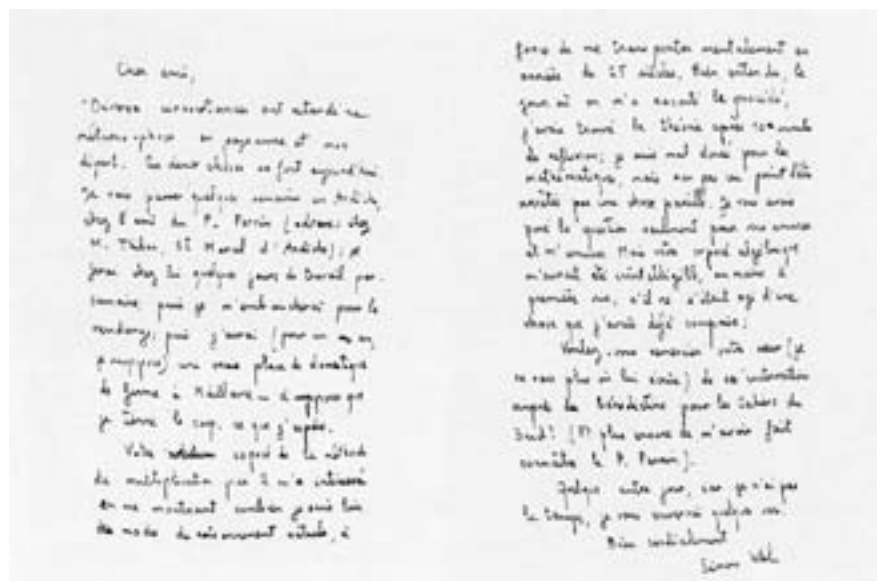 Cher ami,
Diverses circonstances ont retardé ma
métamorphose en paysanne et mon
départ. Les deux choses se font aujourd'hui.
Je vais passer quelques semaines en Ardèche,
chez l'ami du P. Perrin (adresse: chez
M. Thibon, St Marcel d'Ardèche); je
ferai chez lui quelques jours de travail
puis je m'embaucherai pour la
vendange; puis j'aurai (pour un an,
je suppose) une vraie place de domestique
de ferme à à supposer que
je tienne le coup, ce que j'espère.
Votre exposé de la méthode
de multiplication par 2 m'a intéressé
en me montrant combien je suis loin
du mode de raisonnement à
force de me transporter mentalement en
arrière de siècles. Bien entendu, le
jour où on m'a raconté le procédé,
j'avais trouvé la théorie après minute
de réflexion; je suis mal douée pour la
mathématique, mais non pas au point d'être
arrêtée par une chose pareille. Je vous avais
posé la question seulement pour vous amuser
et m'amuser. Mais votre exposé algébrique
m'aurait été inintelligible, au moins à
première vue, s'il ne s'était agi d'une
chose que j'avais déjà comprise.
Voulez-vous remercier votre sœur (je
ne sais plus où lui écrire) de son intervention
auprès du Bénédictin pour les Cahiers du
Sud? (Et plus encore de m'avoir fait
connaître le P. Perrin).
Quelque autre jour, car je n'ai pas
le temps, je vous enverrai quelques vers.
Bien cordialement
Simone Weil